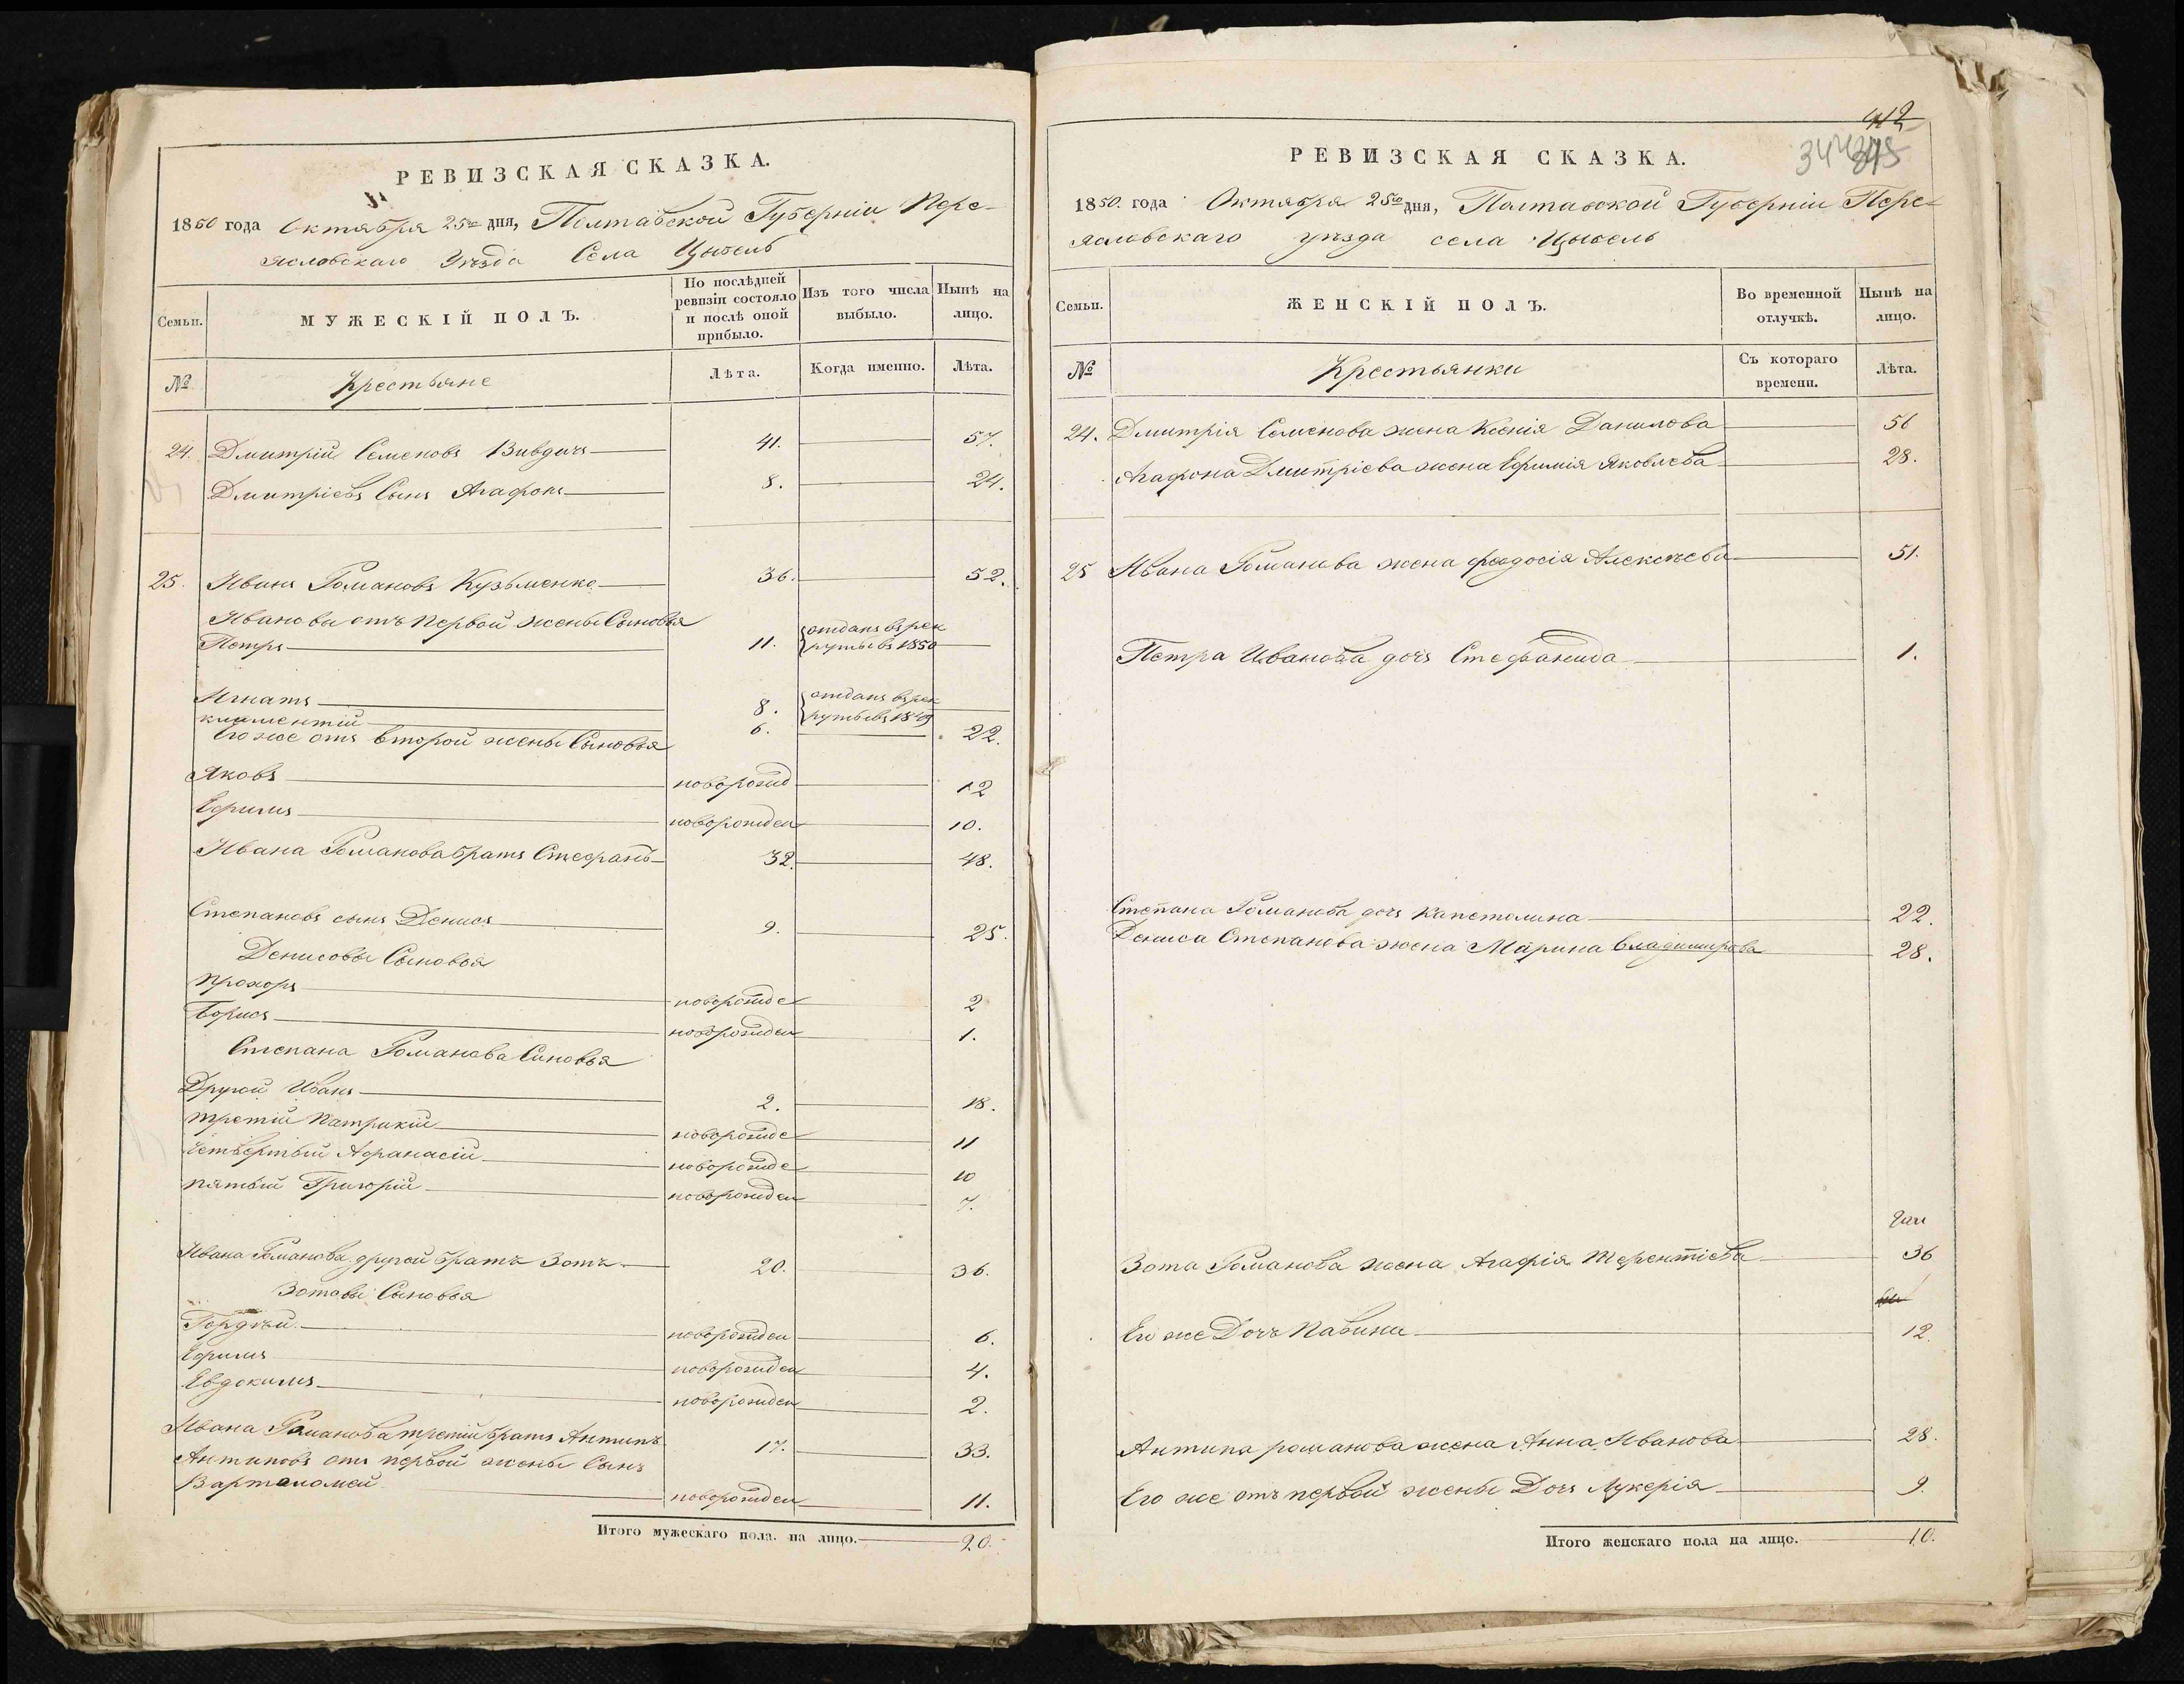 РЕВИЗСКАЯ СКАЗКА.
1850 года Октября 25го дня, Полтавской Губерніи Пере-
яславскаго Уѣзда Села Цыбель
Семьи.
МУЖЕСКІЙ ПОЛЪ.
По послѣдней
ревизіи состояло
и послѣ оной
прибыло.
Изъ того числа
выбыло.
Нынѣ на
лицо.
№
Крестьяне
Лѣта.
Когда именно.
Лѣта.
24. Дмитрій Семеновъ Вивдичъ 41. 57.
Дмитріевъ Сынъ Агафонъ 8. 24.
25. Иванъ Романовъ Кузьменко 36. 52.
Ивановы отъ первой жены Сыновья
Петръ 11. отданъ въ рек
руты въ 1850
Игнатъ 8. отданъ въ рек
руты въ 1849
климентій 6. 22.
Его же отъ второй жены Сыновья
Яковъ новорожд 12
Ефимъ новорожден 10.
Ивана Романова братъ Стефанъ 32. 48.
Степановъ сынъ Денисъ 9. 25.
Денисовы Сыновья
Прохоръ новорожде 2
Борисъ новорожден 1.
Степана Романова Сыновья
Другой Иванъ 2. 18.
третій Патрикій новорожде 11
четвертый Афанасій новорожде 10
пятый Григорій новорожден 7.
Ивана Романова другой братъ Зотъ 20. 36.
Зотовы Сыновья
Гордѣй новорожден 6.
Ефимъ новорожден 4.
Евдокимъ новорожден 2.
Ивана Романова третій братъ Антипъ 17. 33.
Антиповъ отъ первой жены Сынъ
Вартоломей новорожден 11.
Итого мужескаго пола на лицо. 20.
412
РЕВИЗСКАЯ СКАЗКА.
1850 года Октября 25го дня, Полтавской Губерніи Пере-
яславскаго уѣзда села Цыбель
Семьи.
ЖЕНСКІЙ ПОЛЪ.
Во временной
отлучкѣ.
Нынѣ на
лицо.
№
Крестьянки
Съ котораго
времени.
Лѣта.
24. Дмитрія Семенова жена Ксенія Данилова 56
Агафона Дмитріева жена Ефимія Яковлева 28.
25 Ивана Романова жена феодосія Алексѣева 51.
Петра Иванова дочь Стефанида 1.
Степана Романова дочь Капетолина 22.
Дениса Степанова жена Марина Владимирова 28.
Зота Романова жена Агафія Терентіева 36
Его же Дочь Павлина 12.
Антипа романова жена Анна Иванова 28.
Его же отъ первой жены Дочь Лукерія 9.
Итого женскаго пола на лицо. 10.